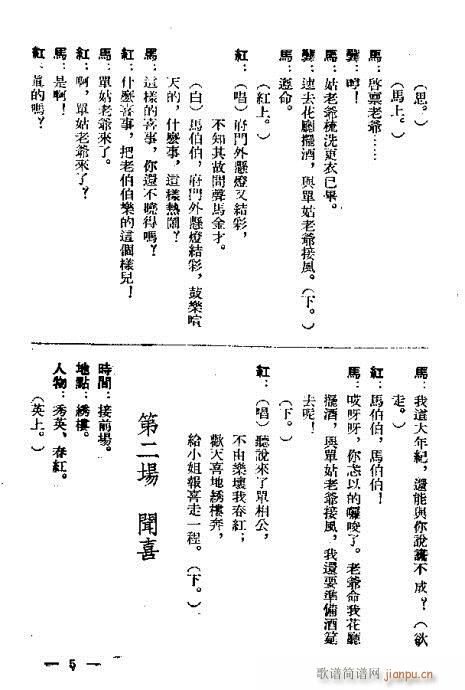 (思。)
(馬上。)
馬：啓禀老爺……
龔：哼！
馬：姑老爺梳洗更衣已畢。
龔：速去花廳擺酒，與單姑老爺接風。(下。)
馬：遵命。
(紅上。)
紅：(唱)府門外懸燈又結彩，
不知其故問聲馬金才。
(白)馬伯伯，府門外懸燈結彩，鼓樂喧
天的，什麽事，這樣熱鬧？
馬：這樣的喜事，你還不曉得嗎？
紅：什麽喜事，把老伯伯樂的這個樣兒！
馬：單姑老爺來了。
紅：啊，單姑老爺來了？
馬：是啊！
紅：眞的嗎？
馬：我這大年紀，還能與你說謊不成？(欲
走。)
紅：馬伯伯，馬伯伯！
馬：哎呀呀，你忒以的囉唆了。老爺命我花廳
擺酒，與單姑老爺接風，我還要準備酒筵
去呢！
(下。)
紅：(唱)聽說來了單相公，
不由樂壞我春紅；
歡天喜地綉樓奔，
給小姐報喜走一程。(下。)
第二場 聞喜
時間：接前場。
地點：綉樓。
人物：秀英、春紅。
(英上。)
— 5 —
歌谱简谱网
www.jianpu.cn